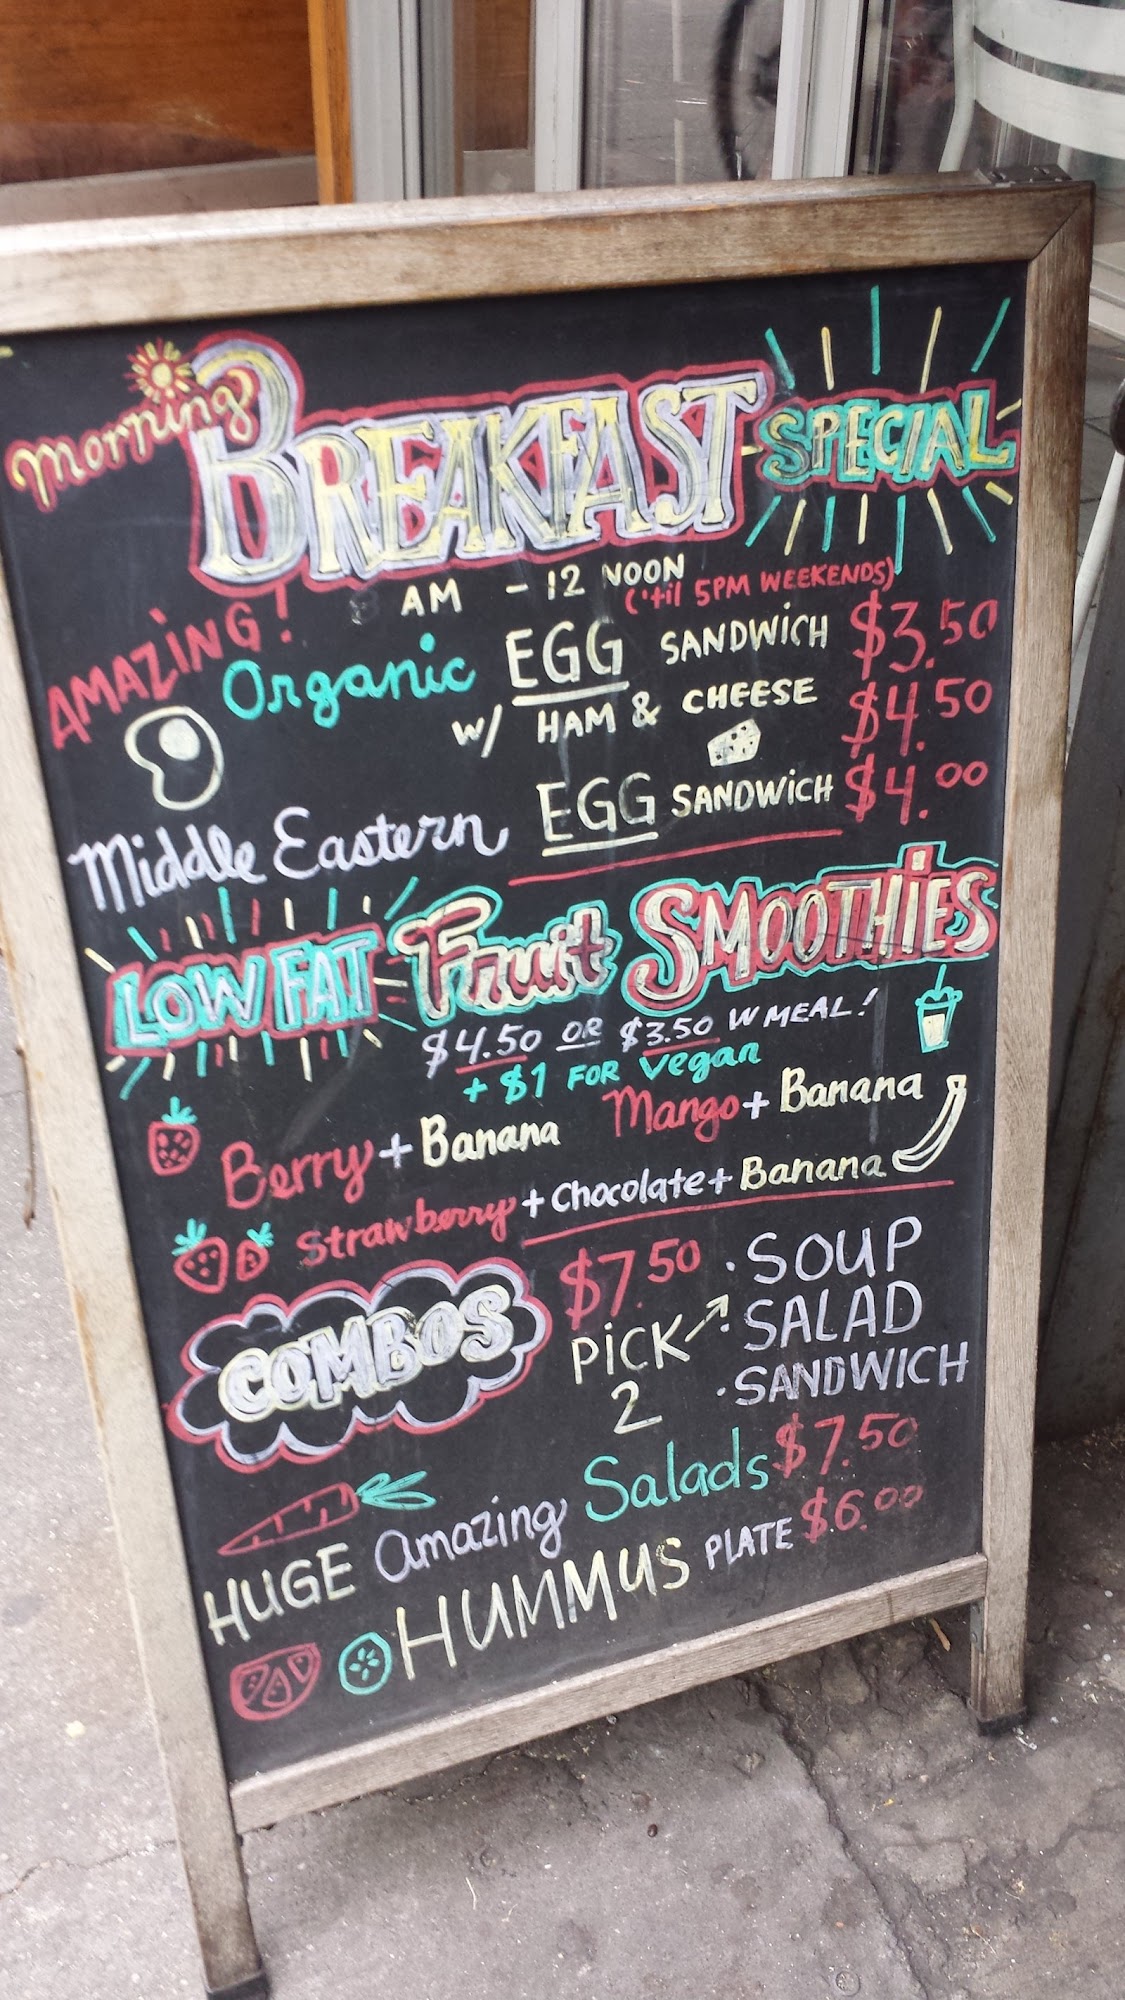 Morning BREAKFAST SPECIAL
AM - 12 NOON
('til 5PM WEEKENDS)
AMAZING!
Organic EGG SANDWICH $3.50
w/ HAM & CHEESE $4.50
Middle Eastern EGG SANDWICH $4.00
LOW FAT Fruit SMOOTHIES
$4.50 OR $3.50 W MEAL!
+ $1 FOR Vegan
Berry + Banana Mango + Banana
Strawberry + Chocolate + Banana
COMBOS $7.50 · SOUP
PICK 2 · SALAD
· SANDWICH
HUGE Amazing Salads $7.50
HUMMUS PLATE $6.00